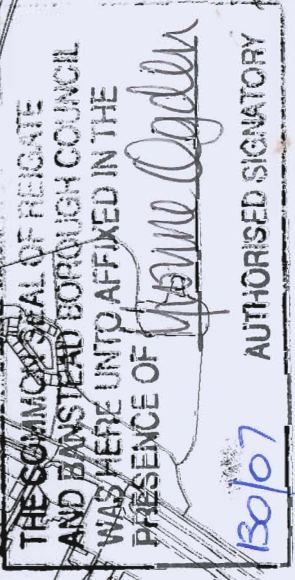 THE COMMON SEAL OF REIGATE
AND BANSTEAD BOROUGH COUNCIL
WAS HERE UNTO AFFIXED IN THE
PRESENCE OF Yvonne Ogden
AUTHORISED SIGNATORY
130/07